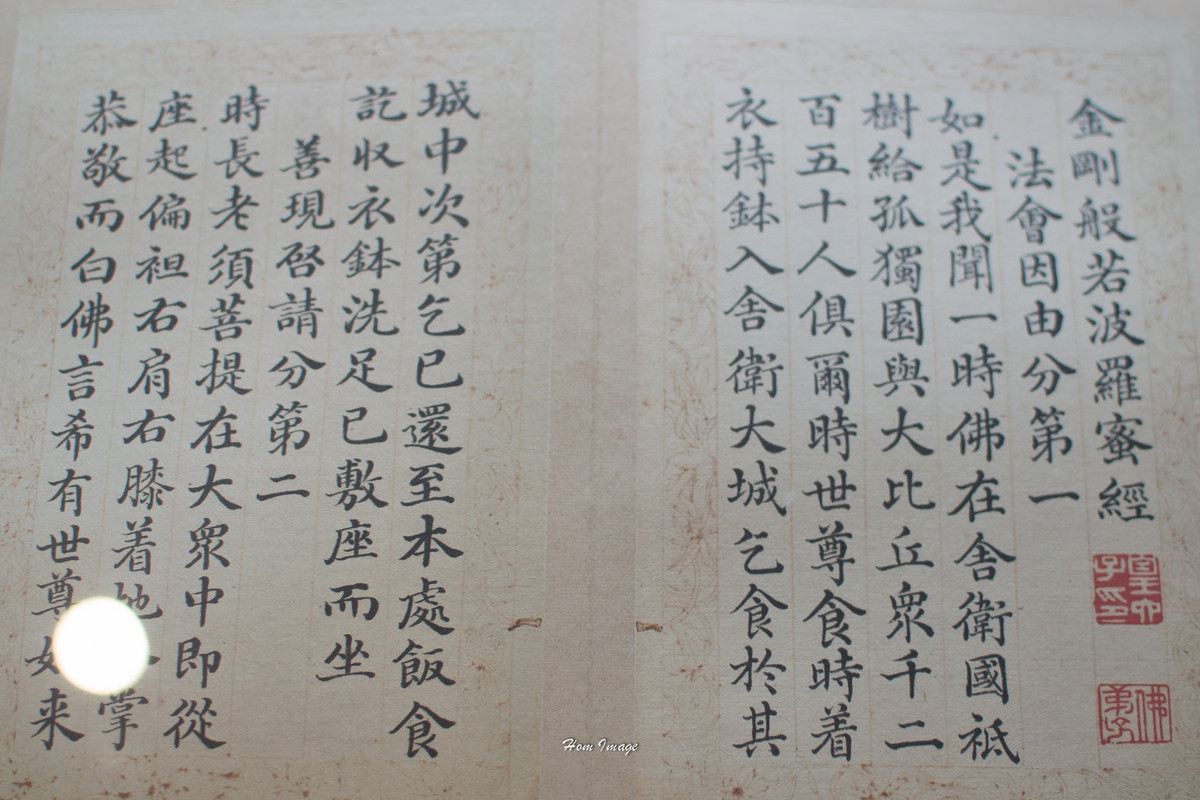 金剛般若波羅蜜經
皇六子印
佛弟子
法會因由分第一
如是我聞一時佛在舍衛國祇
樹給孤獨園與大比丘衆千二
百五十人俱爾時世尊食時着
衣持鉢入舍衛大城乞食於其
城中次第乞已還至本處飯食
訖収衣鉢洗足已敷座而坐
善現啓請分第二
時長老須菩提在大衆中即從
座起偏袒右肩右膝着地掌
恭敬而白佛言希有世尊如来
Hom Image